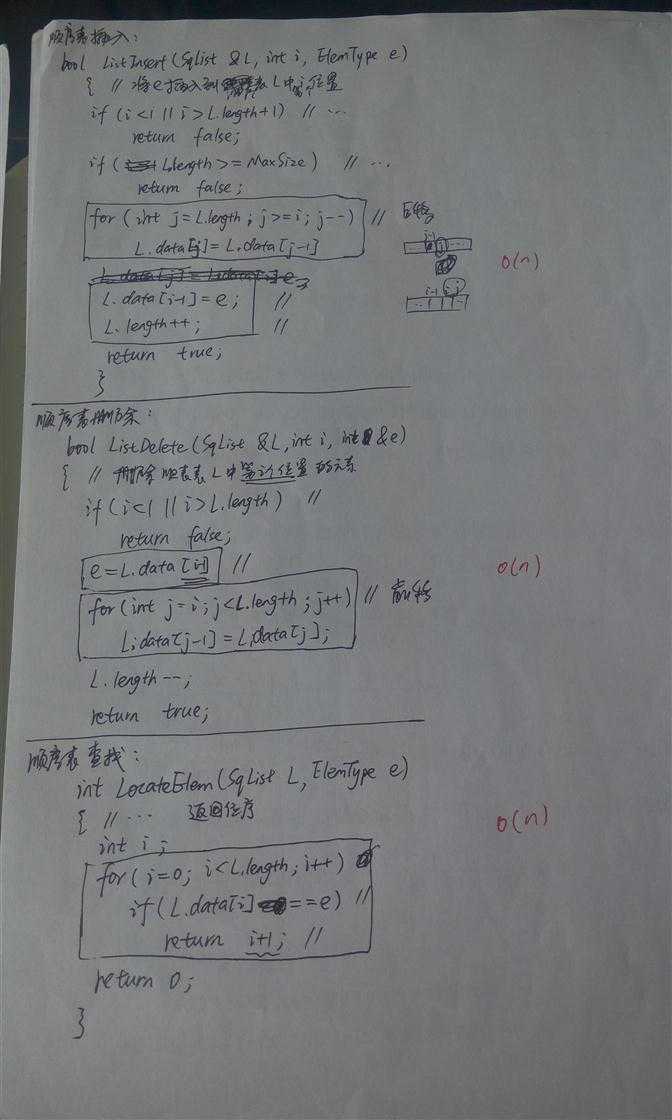 顺序表插入：
bool ListInsert(SqList &L, int i, ElemType e)
{ // 将e插入到表L中第i位置
if (i<1 || i>L.length+1) // ...
return false;
if ( L.length >= MaxSize) // ...
return false;
for (int j=L.length; j>=i; j--) // 后移
L.data[j]=L.data[j-1]
L.data[i-1]=e; //
L.length++; //
return true;
}
i-1 i
i-1 i j
O(n)
顺序表删除：
bool ListDelete(SqList &L, int i, int &e)
{ // 删除顺序表L中第i个位置的元素
if (i<1 || i>L.length) //
return false;
e=L.data[i-1] //
for(int j=i; j<L.length; j++) // 前移
L.data[j-1]=L.data[j];
L.length--;
return true;
O(n)
顺序表查找：
int LocateElem(SqList L, ElemType e)
{ // ... 返回位序
int i;
for(i=0; i<L.length; i++)
if(L.data[i]==e) //
return i+1; //
return 0;
}
O(n)